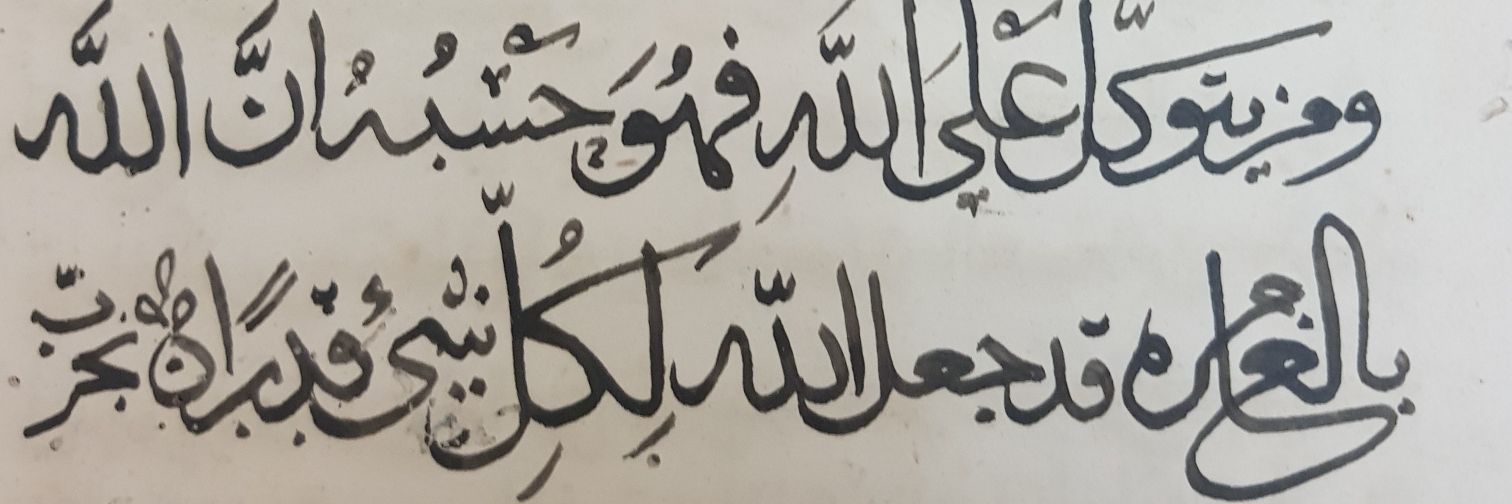 ومن يتوكّل عْلي اللّٰهِ فهُوَ حَسْبُهُ انَّ اللّٰه
بالغ امره قد جعل اللّٰه لِكُلِّ شيْءٍ قَدْرًا